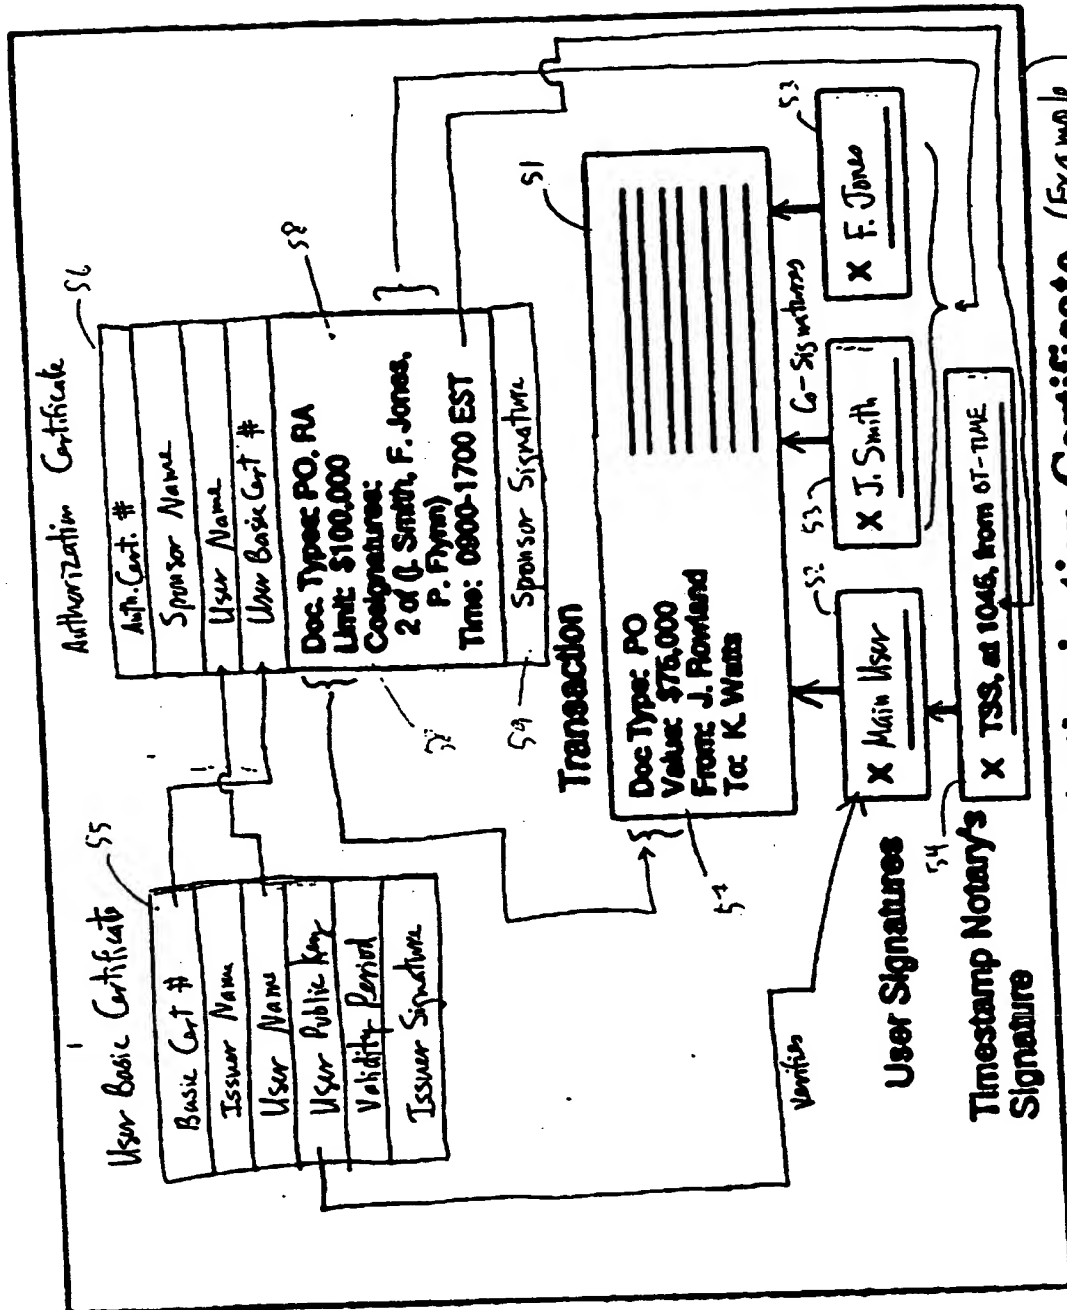 User Basic Certificate
55
Basic Cert #
Issuer Name
User Name
User Public Key
Validity Period
Issuer Signature
Authorization Certificate
56
Auth. Cert. #
Sponsor Name
User Name
User Basic Cert #
Doc. Types: PO, RA
Limit: $100,000
Cosignatures:
2 of (J. Smith, F. Jones,
P. Flynn)
Time: 0900-1700 EST
58
58
Sponsor Signature
59
Transaction
51
Doc Type: PO
Value: $75,000
From: J. Rowland
To: K. Watts
57
Co-Signatures
Verifies
User Signatures
52
X Main User
53
X J. Smith
53
X F. Jones
Timestamp Notary's
Signature
54
X TSS, at 1046, from BT-TIME
Certificate (Example